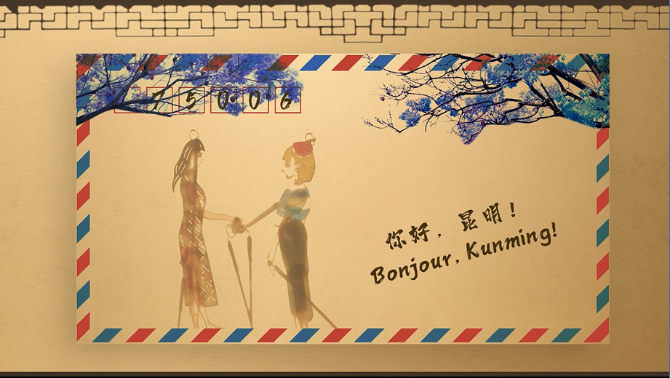 75006
你好，昆明！
Bonjour, Kunming!